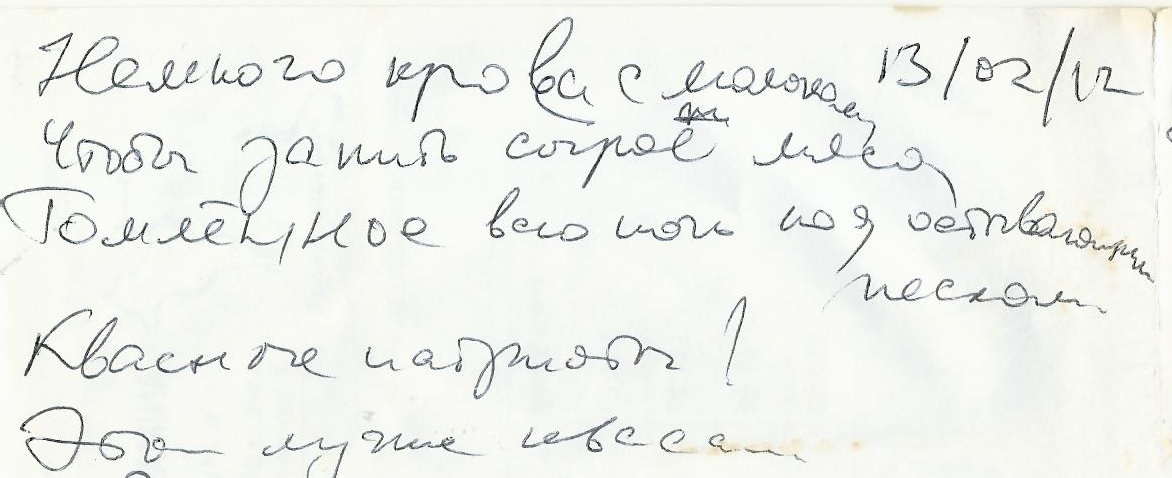 Немного крови с молоком 13/02/12
Чтобы запить сырое мясо
Томлёное всю ночь под остывающим
песком
Квасные патриоты!
Это лучше кваса